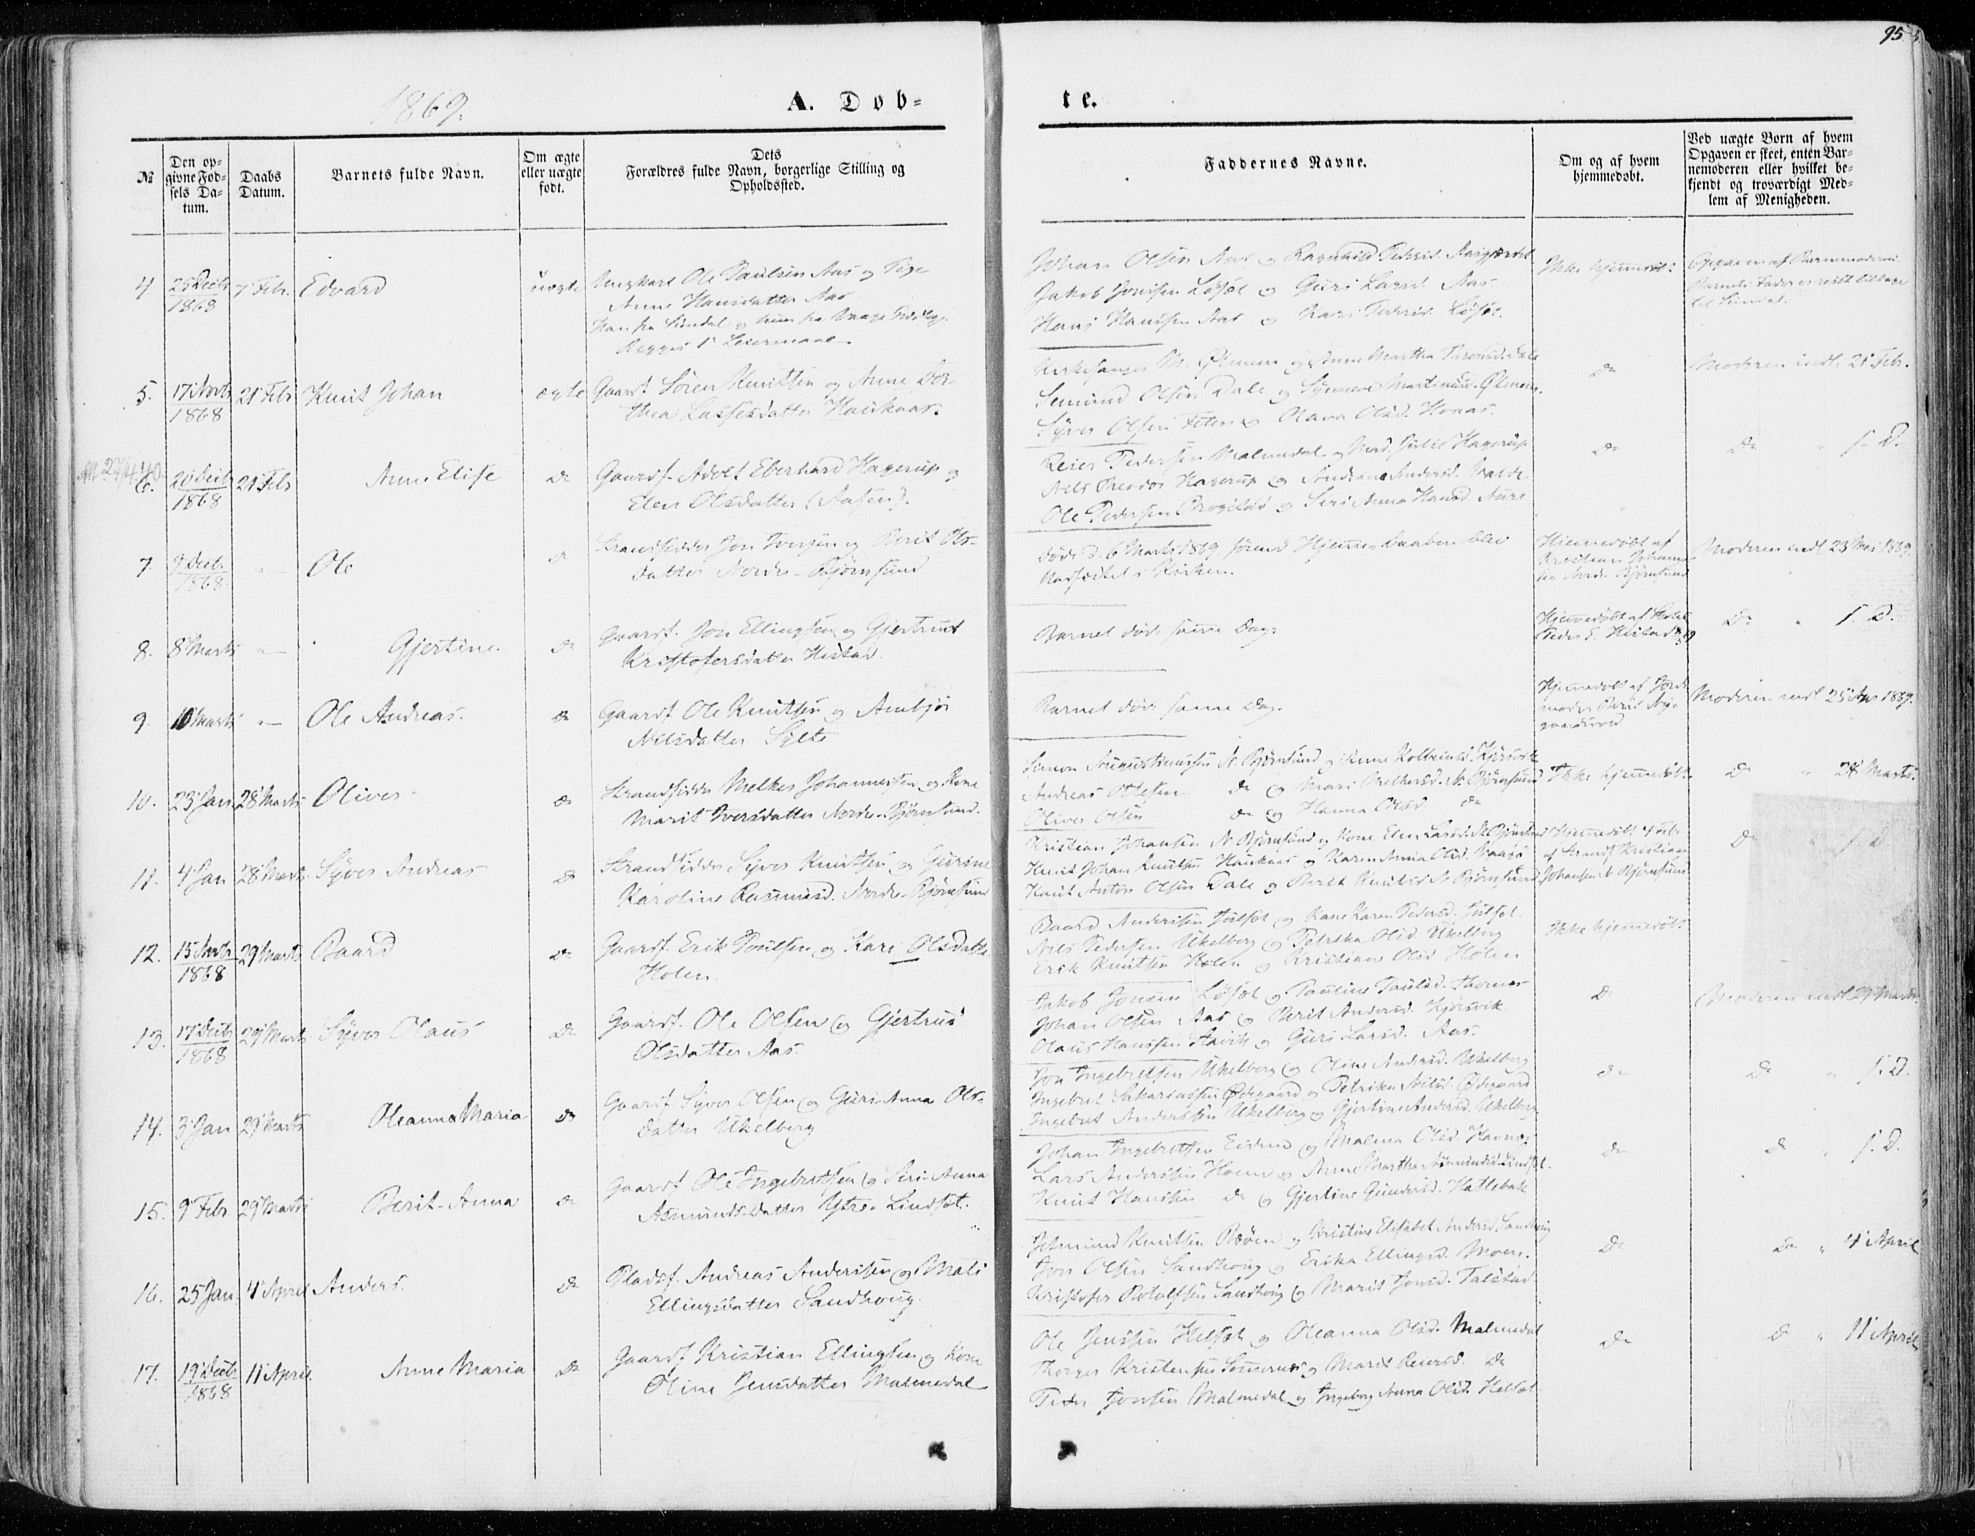 95
1869.
A. Døb-
te.
№
Den op-
givne Fød-
sels Da-
tum.
Daabs
Datum.
Barnets fulde Navn.
Om ægte
eller uægte
født.
Dets
Forældres fulde Navn, borgerlige Stilling og
Opholdssted.
Faddernes Navne.
Om og af hvem
hjemmedøbt.
Ved uægte Børn af hvem
Opgaven er skeet, enten Bar-
nemoderen eller hvilket be-
kjendt og troværdigt Med-
lem af Menigheden.
4
25 Decbr
1868
7 Febr.
Edvard
uægte
Ungkarl Ole Paulsen Aas og Pige
Anne Hansdatter Aas
Johan Olsen Aas og Ragnhild Pedersd.
Jakob Jonsen Løset og Guri Larsd. Aas
Hans Hanssen Aas og Kari Pedersd. Løset
Ikke hjemmedøbt
5.
17 Novb
1868
21 Febr
Knut Johan
ægte
Gaardf. Søren Knutsen og Anne Dor-
thea Lassesdatter Haukaas.
Kirkesanger M. Ølmem og Anne Martha
Semund Olsen Dale og
Syver Olsen og Olava Olsd. Honas.
Do
Moderen indl. 21 Febr.
6.
20 Decbr
1868
21 Febr
Anne Elise
Do
Gaardf. Adolf Eberhard Hagerup og
Elen Olsdatter (Aasen).
Reier Pedersen Malmedal og Mad. Julie Hagerup
Nils Theodor Hagerup og
Ole Pedersen og Siri Anna Hansd. Aure
Do
Do " s. D.
7.
9 Decbr
1868
Ole
Do
Strandsidder Jon Iversen og Berit Ols-
datter Nordre-Bjørnsund
døde d. 6 Marts 1869 førend Hjemme Daaben blev
stadfæstet i Kirken.
Hjemmedøbt af
Kristian Johannes-
sen Nordr. Bjørnsund
Moderen indl 23 Mai 1869.
8.
8 Marts
Gjertine.
Do
Gaardf. Jon Ellingsen og Gjertrud
Kristofersdatter Hestad.
Barnet døde samme Dag.
Do " s. D.
9.
10 Marts
Ole Andreas.
Do
Gaardf Ole Knutsen og Ambjør
Nilsdatter Sylte
Barnet døde samme Dag.
Hjemmedøbt af Jorde
moder Berit
Moderen indl 25 Apr 1869.
10.
23 Jan
28 Marts
Oliver
Do
Strandsidder Melker Johannessen og Kone
Marit Iversdatter Nordre-Bjørnsund.
Simon Augustinussen N. Bjørnsund og Anne Kolbeinsd.
Andreas Olsen Do og Mari Melkersd. N. Bjørnsund
Oliver Olsen Do og Hanna Olsd Do
Ikke hjemmedøbt
Do " 28 Marts.
11.
4 Jan
28 Marts.
Syver Andreas
Do
Strandsidder Syver Knutsen og Gurine
Karoline Rasmusd. Nordre-Bjørnsund
Kristian Johansen N. Bjørnsund og Kone Elen Larsd. N. Bjørnsund
Knut Johan Knutsen Haukaas og Karen Anna Olsd.
Knut Anton Olsen Dale og Berit Knutsd N. Bjørnsund
Do " s. D.
12.
15 Novb
1868
29 Marts
Baard
Do
Gaardf. Erik Poulsen og Kari Olsdatter
Holen.
Baard Andersen Julset og Kone Karen Pedersd. Julset.
Nils Pedersen Ukelberg og Petrika Olsd. Ukelberg
Erik Knutsen Holen og Kristiane Olsd Holen
Ikke hjemmedøbt
13.
17 Decbr
1868
29 Marts
Syver Olaus
Do
Gaardf. Ole Olsen og Gjertrud
Olsdatter Aas.
Jakob Jonsen Løset og Pauline Paulsd. Thornes
Johan Olsen Aas og Berit Andersd. Kjørsvik
Olaus Hanssen og Guri Larsd. Aas.
Do
Moderen indl 29 Marts.
14.
3 Jan
29 Marts
Oleanna Maria
Do
Gaardf Syver Olsen og Guri-Anna Ols-
datter Ukelberg
Jon Ingebretsen Ukelberg og Oline Andersd. Ukelberg
Ingebret Sakariassen Ødegaard og Petrika Nilsd. Ødegaard
Ingebret Anderssen Ukelberg og Gjertine Andersd. Ukelberg
Do
Do " s. D.
15.
9 Febr
29 Marts
Berit-Anna
Do
Gaardf Ole Ingebretsen og Siri-Anna
Asmunds-datter Ytre-Lindset.
Johan Ingebretsen Eidem og Malena Olsd.
Lars Andersen Hoem og Anne Martha Asmundsd. Lindset.
Knut Hansen Do og Gjertine Gundersd. Hattebak
Do
Do " s. D.
16.
25 Jan
4 April
Anders.
Do
Pladsf. Andreas Anderssen og Mali
Ellingsdatter Sandhoug.
Knutsen og Kristine Elisabet Andersd. Sandhoug
Jon Olsen Sandhoug og Erika Ellingsd. Moen.
Kristofer Rotolfsen Sandhoug og Marit Jonsd. Talstad.
Do
Do " 4 April
17.
19 Decbr
1868
11 April.
Anne Maria
Do
Gaardf Kristian Ellingsen og Kone
Oline Jensdatter Malmedal
Ole Jenssen Helset og Oleanna Olsd. Malmedal
Thorger Kristensen og Marit Reiersd. Do
Peder Jonsen Malmedal og Ingeborg Anna Olsd. Helset
Do
Do " 11 April